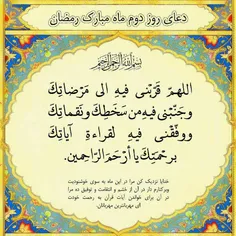 دعای روز دوم ماه مبارک رمضان
بسم الله الرحمن الرحیم
اللهم قَرّبْنی فیهِ الی مَرْضاتِکَ
وجَنّبْنی فیهِ من سَخَطِکَ ونَقماتِکَ
ووفّقْنی فیهِ لقراءةِ آیاتِکَ
برحْمَتِکَ یا أرْحَمَ الرّاحِمین.
خدایا نزدیک کن مرا در این ماه به سوی خوشنودیت
وبرکنارم دار در آن از خشم و انتقامت و توفیق ده مرا
در آن برای خواندن آیات قرآن به رحمت خودت
ای مهربانترین مهربانان.